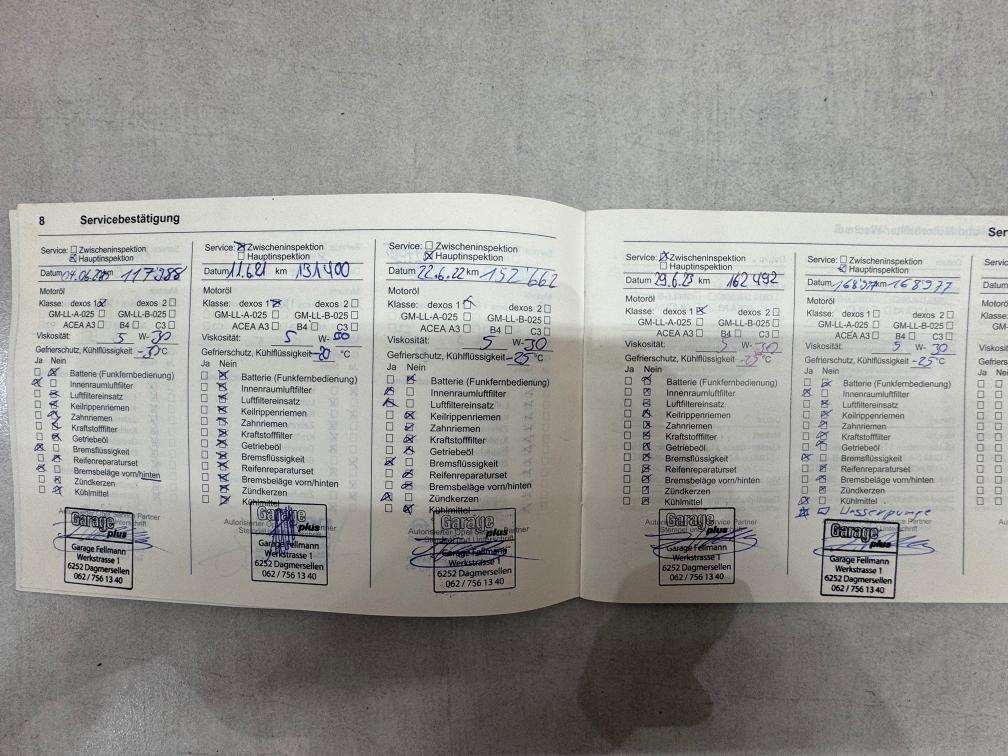 8 Servicebestätigung
Service: Zwischeninspektion
Hauptinspektion
Datum 04.06.20 km 117988
Motoröl
Klasse: dexos 1 dexos 2
GM-LL-A-025 GM-LL-B-025
ACEA A3 B4 C3
Viskosität: 5 W-30
Gefrierschutz, Kühlflüssigkeit °C
Ja Nein
Batterie (Funkfernbedienung)
Innenraumluftfilter
Luftfiltereinsatz
Keilrippenriemen
Zahnriemen
Kraftstofffilter
Getriebeöl
Bremsflüssigkeit
Reifenreparaturset
Bremsbeläge vorn/hinten
Zündkerzen
Kühlmittel
Garage
plus
Garage Fellmann
Werkstrasse 1
6252 Dagmersellen
062 / 756 13 40
Service: Zwischeninspektion
Hauptinspektion
Datum 11.6.21 km 131400
Motoröl
Klasse: dexos 1 dexos 2
GM-LL-A-025 GM-LL-B-025
ACEA A3 B4 C3
Viskosität: 5 W-
Gefrierschutz, Kühlflüssigkeit °C
Ja Nein
Batterie (Funkfernbedienung)
Innenraumluftfilter
Luftfiltereinsatz
Keilrippenriemen
Zahnriemen
Kraftstofffilter
Getriebeöl
Bremsflüssigkeit
Reifenreparaturset
Bremsbeläge vorn/hinten
Zündkerzen
Kühlmittel
Garage
plus
Garage Fellmann
Werkstrasse 1
6252 Dagmersellen
062 / 756 13 40
Service: Zwischeninspektion
Hauptinspektion
Datum 22.6.22 km 152 662
Motoröl
Klasse: dexos 1 dexos 2
GM-LL-A-025 GM-LL-B-025
ACEA A3 B4 C3
Viskosität: 5 W-30
Gefrierschutz, Kühlflüssigkeit -25 °C
Ja Nein
Batterie (Funkfernbedienung)
Innenraumluftfilter
Luftfiltereinsatz
Keilrippenriemen
Zahnriemen
Kraftstofffilter
Getriebeöl
Bremsflüssigkeit
Reifenreparaturset
Bremsbeläge vorn/hinten
Zündkerzen
Kühlmittel
Garage
plus
Garage Fellmann
Werkstrasse 1
6252 Dagmersellen
062 / 756 13 40
Service: Zwischeninspektion
Hauptinspektion
Datum 29.6.23 km 162 492
Motoröl
Klasse: dexos 1 dexos 2
GM-LL-A-025 GM-LL-B-025
ACEA A3 B4 C3
Viskosität: 5 W-30
Gefrierschutz, Kühlflüssigkeit -25 °C
Ja Nein
Batterie (Funkfernbedienung)
Innenraumluftfilter
Luftfiltereinsatz
Keilrippenriemen
Zahnriemen
Kraftstofffilter
Getriebeöl
Bremsflüssigkeit
Reifenreparaturset
Bremsbeläge vorn/hinten
Zündkerzen
Kühlmittel
Garage
plus
Garage Fellmann
Werkstrasse 1
6252 Dagmersellen
062 / 756 13 40
Service: Zwischeninspektion
Hauptinspektion
Datum km 168977
Motoröl
Klasse: dexos 1 dexos 2
GM-LL-A-025 GM-LL-B-025
ACEA A3 B4 C3
Viskosität: 5 W-30
Gefrierschutz, Kühlflüssigkeit -25 °C
Ja Nein
Batterie (Funkfernbedienung)
Innenraumluftfilter
Luftfiltereinsatz
Keilrippenriemen
Zahnriemen
Kraftstofffilter
Getriebeöl
Bremsflüssigkeit
Reifenreparaturset
Bremsbeläge vorn/hinten
Zündkerzen
Kühlmittel
Wasserpumpe
Garage
plus
Garage Fellmann
Werkstrasse 1
6252 Dagmersellen
062 / 756 13 40
Ser
Service
Datum
Motoröl
Klasse:
Viskosität:
Gefriersch
Ja Nein